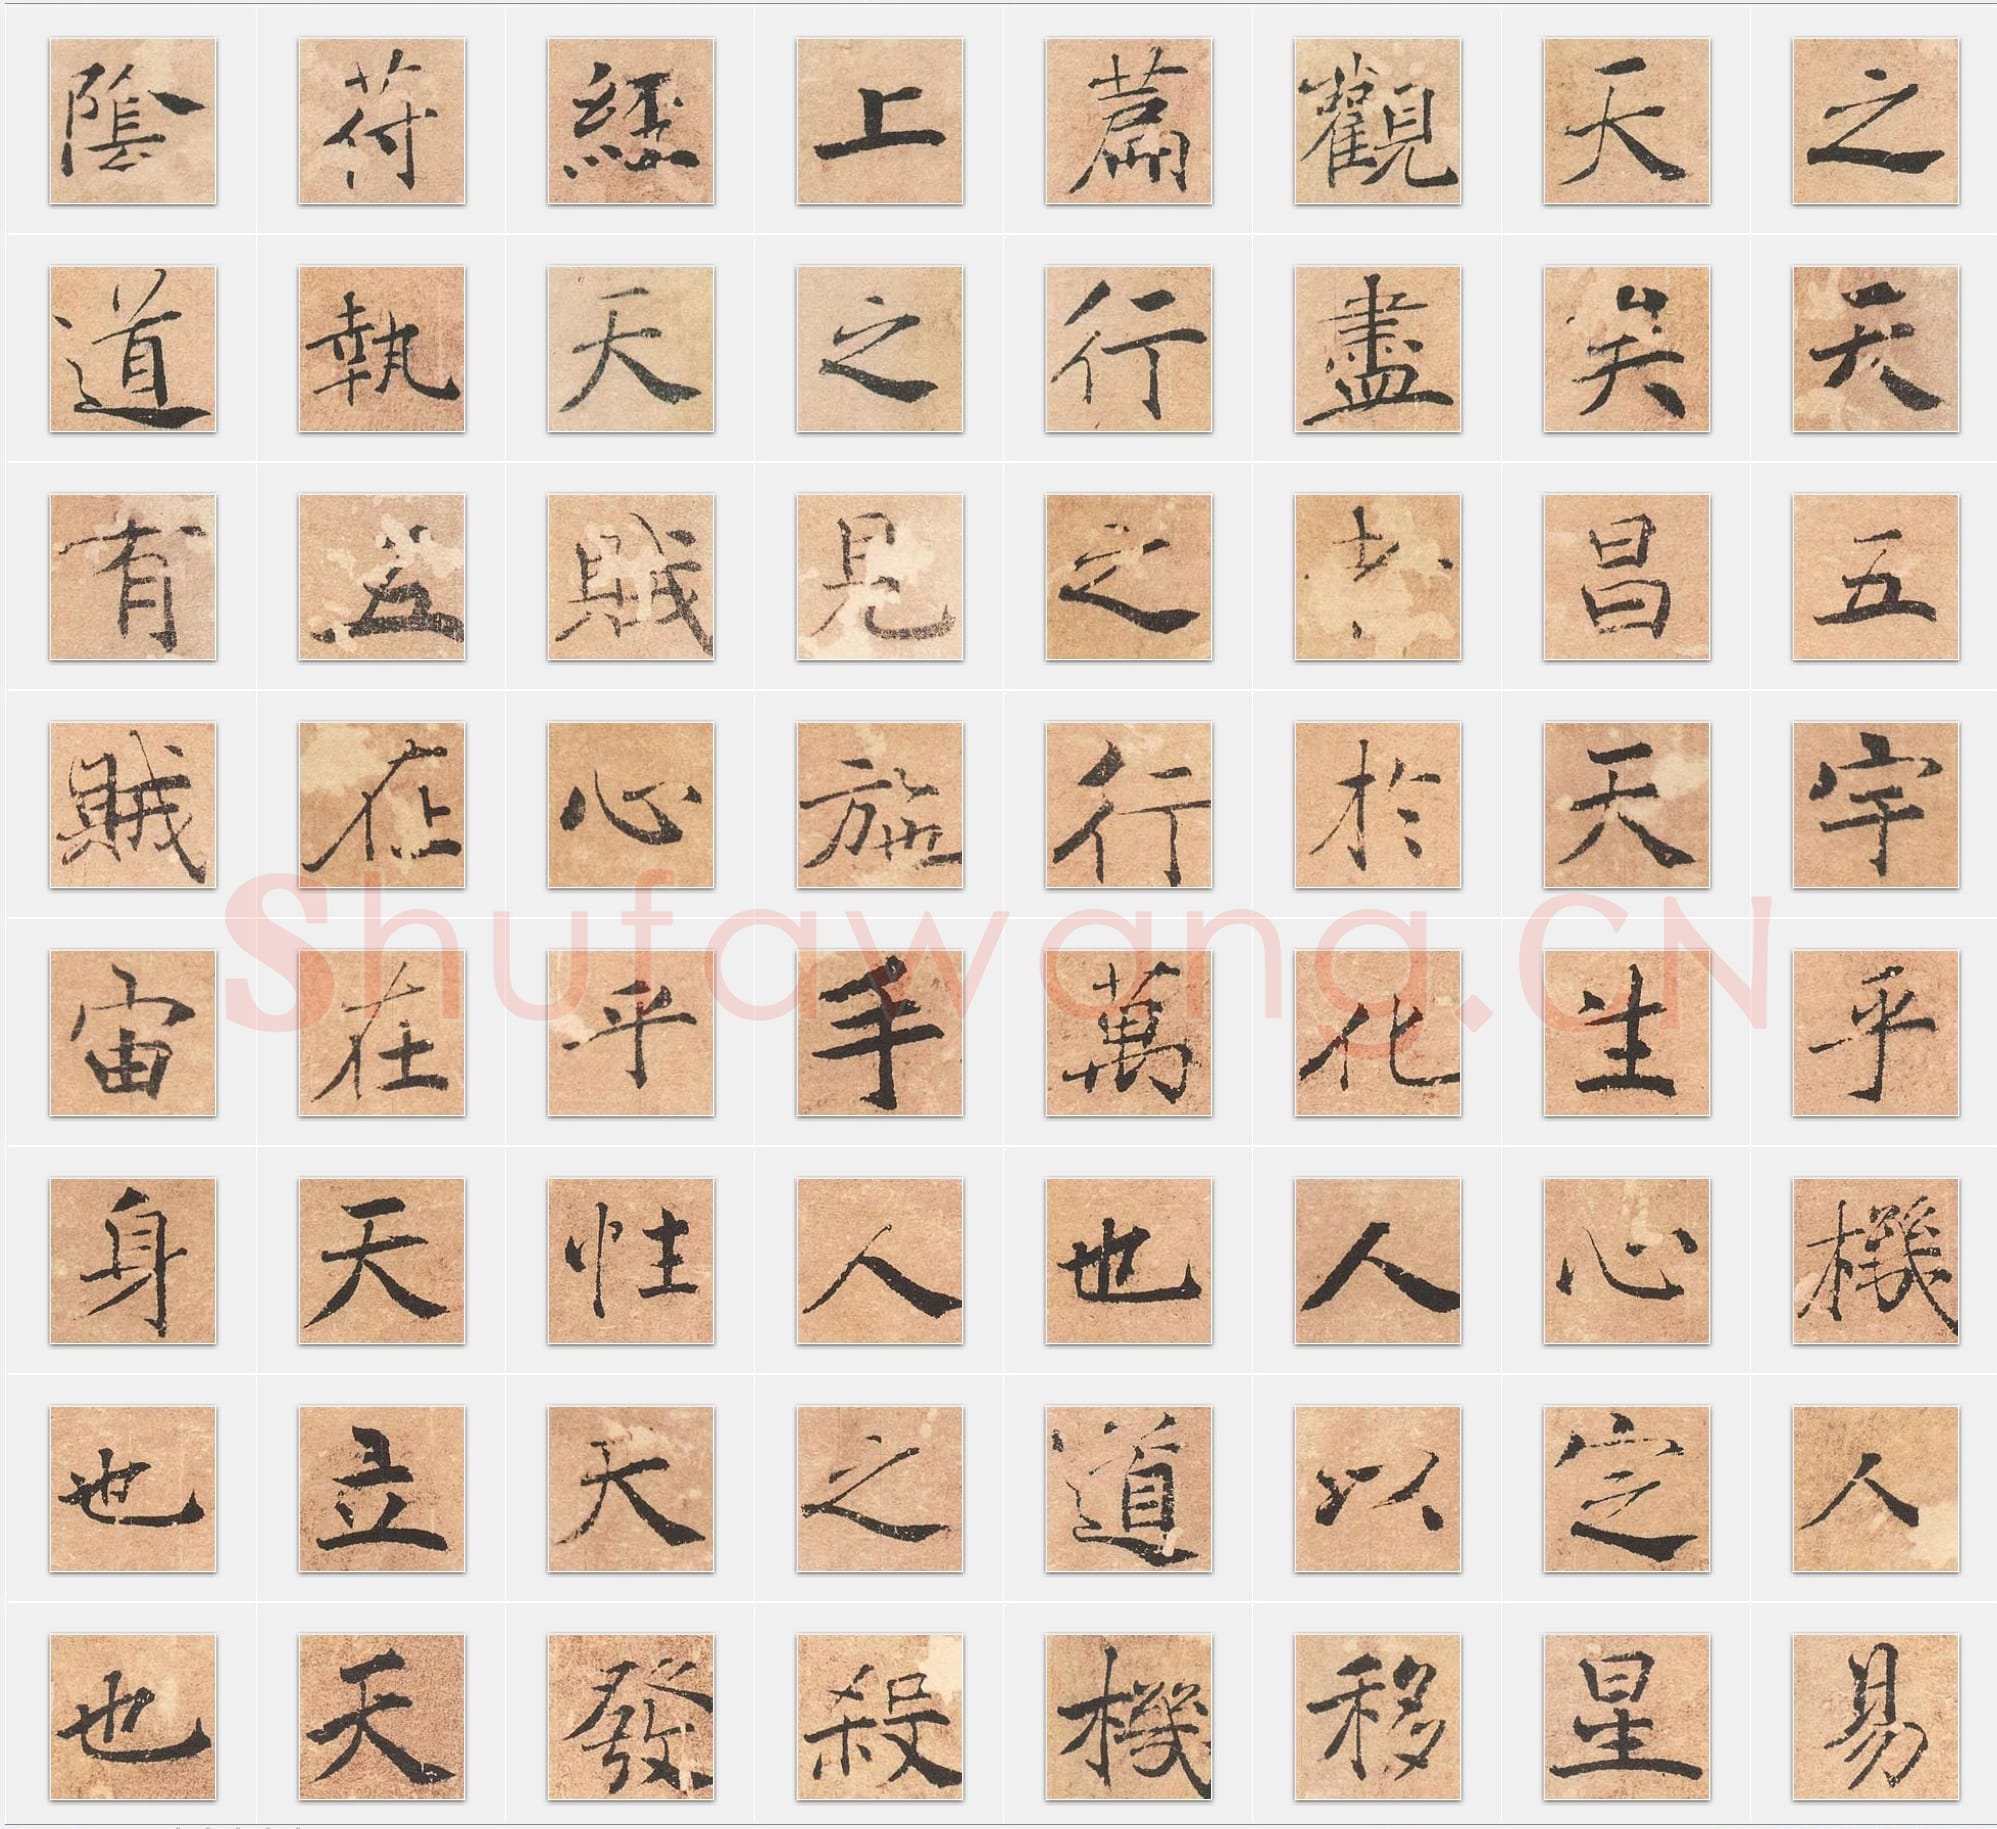 陰符經上篇觀天之
道執天之行盡矣天
有五賊見之昌五
賊在心施行於天宇
宙在乎手萬化生乎
身天性人也人心機
也立天之道以定人
也天發殺機移星易
Shufawang.CN